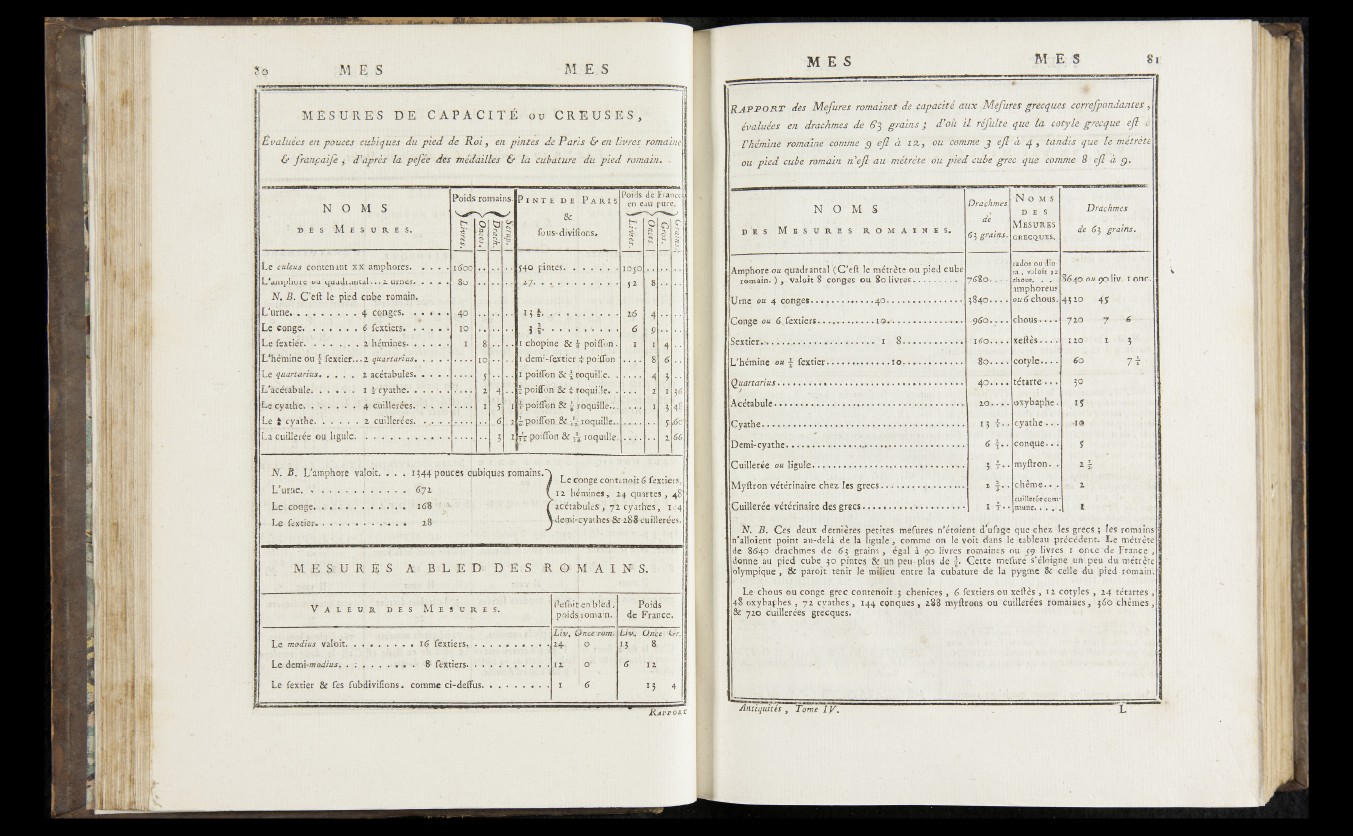 80 MES MES
MESURES DE CAPACITÉ OU CREUSES,
Évaluées en pouces cubiques du pied de Roi, en pintes de Paris & en livres romaine
& françaiſe, d'après la peſée des médailles & la cubature du pied romain.
NOMS
DES MESURES.
Poids romains.
Livres. Onces. Drach. Scrup.
PINTE DE PARIS
&
ſous-diviſions.
Poids de France
en eau pure.
Livres. Onces Gros. Grains.
Le culeus contenant XX amphores. . . . . 1600 540 pintes. . . . . . . 1050
L'amphore ou quadrantal . . . 2 urnes. . . . . 80 27. . . . . . . . . 52 8
N. B. C'eſt le pied cube romain.
L'urne. . . . . . . . . 4 conges. . . . . . 40 13 ½. . . . . . . . . 26 4
Le conge. . . . . . . 6 ſextiers. . . . . . 10 3 . . . . . . . . . 6 9
Le ſextier. . . . . . . 2 hémines. . . . . . 1 8 1 chopine & poiſſon. 1 1 4
L'hémine ou ½ ſextier...2 quartarius. . . . . 10 1 demi-ſextier poiſſon 8 6
Le quartarius. . . . . 2 acétabules. . . . . 5 1 poiſſon & roquille. . 4 3
L'acétabule. . . . . . 1 ½ cyathe. . . . . 2 4 poiſſon & roquille. . 2 1 36
Le cyathe. . . . . . . 4 cuillerées. . . . . 1 5 1 poiſſon & roquille.. 1 3 48
Le cyathe. . . . . . 2 cuillerées. . . . . 6 2 poiſſon & roquille.. 5 60
La cuillerée ou ligule. . . . . . . . . . . 3 1 poiſſon & roquille. 2 66
N. B. L'amphore valoit. . . . 1344 pouces cubiques romains.
L'urne. . . . . . . . . . . 672
Le conge. . . . . . . . . . 168
Le ſextier. . . . . . . . . . 28
Le conge contenoit 6 ſextiers,
12 hémines, 24 quartes, 48
acétabules, 72 cyathes, 144
demi-cyathes & 288 cuillerées.
MESURES A BLED DES ROMAINS.
VALEUR DES MESURES.
Peſoit en bled.
poids romain.
Poids
de France.
Liv. Once rom. Liv. Once Gr.
Le modius valoit. . . . . . . . 16 ſextiers. . . . . . . . . . 24 0 13 8
Le demi-modius. . . . . . . . . 8 ſextiers. . . . . . . . . . 12 0 6 12
Le ſextier & ſes ſubdiviſions. comme ci-deſſus. . . . . . . . . 1 6 13 4
RAPPORT
MES MES 81
RAPPORT des Meſures romaines de capacité aux Meſures grecques correſpondantes,
évaluées en drachmes de 63 grains; d'où il réſulte que la cotyle grecque eſt à
l'hémine romaine comme 9 eſt à 12, ou comme 3 eſt à 4, tandis que le métrète
ou pied cube romain n'eſt au métrète ou pied cube grec que comme 8 eſt à 9.
NOMS
DES MESURES ROMAINES.
Drachmes
de
63 grains.
NOMS
DES
MESURES
GRECQUES.
Drachmes
de 63 grains.
Amphore ou quadrantal (C'eſt le métrète ou pied cube
romain.), valoit 8 conges ou 80 livres......... 7680.... 8640 ou 90 liv. 1 onc.
Urne ou 4 conges.............40................ 3840.... amphoreus
ou 6 chous. 4320 45
Conge ou 6 ſextiers............10................. 960.... chous.... 720 7 6
Sextier........................ 1 8............. 160.... xeſtès.... 120 1 3
L'hémine ou ½ ſextier.............10............. 80.... cotyle.... 60 7 ½
Quartarius..................................... 40.... tétarte... 30
Acétabule...................................... 20.... oxybaphe. 15
Cyathe......................................... 13 .. cyathe... 10
Demi-cyathe.................................... 6 .. conque... 5
Cuillerée ou ligule............................ 3 .. myſtron. . 2 ½
Myſtron vétérinaire chez les grecs............. 2 .. chême. . . 2
Cuillerée vétérinaire des grecs................ 1 .. cuillerée com-
mune. . . . . 1
N. B. Ces deux dernières petites meſures n'étoient d'uſage que chez les grecs; les romains
n'alloient point au-delà de la ligule, comme on le voit dans le tableau précédent. Le métrète
de 8640 drachmes de 63 grains, égal à 90 livres romaines ou 59 livres 1 once de France,
donne au pied cube 30 pintes & un peu plus de . Cette meſure s'éloigne un peu du métrète
olympique, & paroît tenir le milieu entre la cubature de la pygme & celle du pied romain.
Le chous ou conge grec contenoit 3 chenices, 6 ſextiers ou xeſtès, 12 cotyles, 24 tétartes,
48 oxybaphes, 72 cyathes, 144 conques, 288 myſtrons ou cuillerées romaines, 360 chêmes,
& 720 cuillerées grecques.
Antiquités, Tome IV. L